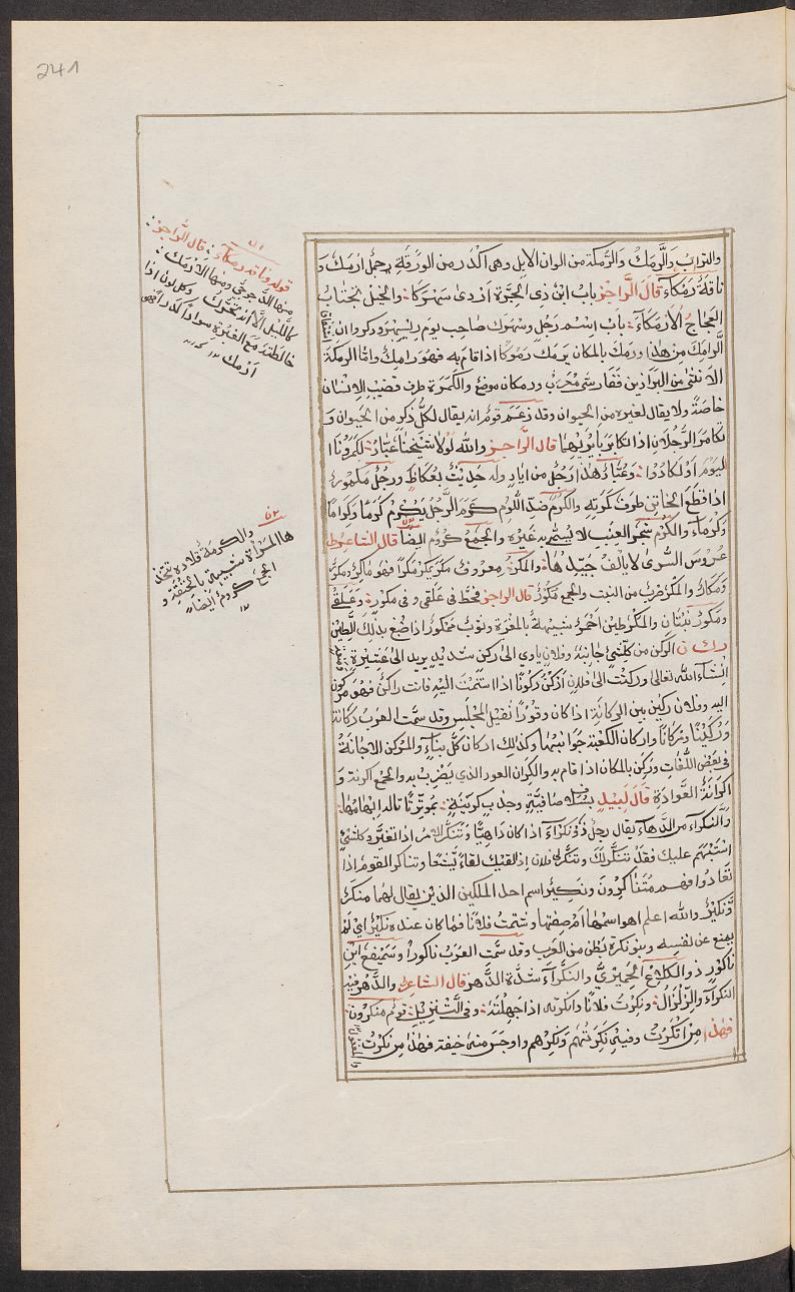 241
والتراب والرَّمَكْ والرُّمكة من الوان الابل وهى اكدر من الورقة جمل ارمك و
ناقة رمكآء قال الرَّاجز باب ابن ذى الجرّة اردى شهركا والخيل تجتاب
العجاج الارمكآء باب اسم رجل وشهرك صاحب يوم ريشهر وذكروا ان اشتقاق
الرامك من هذا ورمك بالمكان يرمك رموكا اذا قام به فهو رامك وامّا الرمكة
الانثى من البراذين ففارسىّ معرّب ورمكان موضع والكمرة طرف قضيب الانسان
خاصّة ولا يقال لغيره من الحيوان وقد زعم قوم انه يقال لكلّ ذكر من الحيوان و
تكامر الرجلان اذا تكابرا بأيريهما قال الرَّاجز والله لولا شيخنا عبّاد لكمرونا ا
ليوم او لكادوا وعبّاد هذا رجل من اياد وله حديث بعكاظ ورجل مكمور
اذا قطع الخاتن طرف كمرته والكرم ضدّ اللؤم كرم الرجل يكرم كرما وكراما
وكرماء والكرم شجر العنب لا يسمّى به غيره والجمع كروم ايضا قال الشاعر
عروس السرى لا يألف جيدها والمكر معروف مكر يمكر مكرا فهو ماكر ومكر
ومكار والمكر ضرب من النبت والجمع مكور قال الراجز فحط فى علقى وفى مكور وعلقى
ومكور نبتان والمكر طين احمر شبيهة بالمغرة وثوب ممكور اذا صُبغ بذلك الطين
ر ك ن الركن من كلّ شئ جانبه وفلان ياوى الى ركن شديد يريد الى عشيرة
انشاء الله تعالى وركنت الى فلان اركن ركونا اذا استنمت اليه فانت راكن فهو مركون
اليه وفلان ركين بين الركانة اذا كان وقورا ثقيل المجلس وقد سمّت العرب ركانة
وركينا وركانا واركان الكعبة جوانبها وكذلك اركان كلّ بناء والمركن الاجانة
فى بعض اللغات وركن بالمكان اذا قام به والكران العود الذى يضرب به والجمع اكرنة و
الكرانة العوادة قال لبيد صافية وجذب كرينة بموتّر تاتاله ابهامها
والنكراء من الدهاء يقال رجل ذو نكراء اذا كان داهيا وتنكر الامر اذا تغيّر وكلّ شئ
استبهم عليك فقد تنكّر لك وتنكّر لى فلان اذا لقيك لقاء بشعا وتناكر القوم اذا
تعادوا فهم متناكرون ونكير اسم احد الملكين الذين يقال لهما منكر
ونكير والله اعلم اهو اسمها ام صفتها وشتمت فلانا فما كان عنده نكير اى لم
يمنع عن نفسه وبنو نكرة بطن من العرب وقد سمّت العرب ناكورا وسميفع ابن
ناكور ذو الكلاع الحميرىّ والنكراء شدّة الدهر قال الشاعر والدهر فيه
النكراء والزلزال ونكرت فلانا وانكرته اذا جهلته وفى التنزيل قوم منكرون
فهذا من انكرت وفيه نكرتهم ونكرهم واوجس منهم خيفة فهذا من نكرت
قوله وناقة رمكاء قال الراجز
منها الدجوجى ومنها الارمك
كالليل الا انه تحرك وكل لون اذا
خالطته مع الغبرة سوادا كدرا فهو
ارمك ١٢
والكرمة قلادة تتخذ
ها المرأة شبيهة بالمخنقة و
الجمع كروم ايضا
١٢